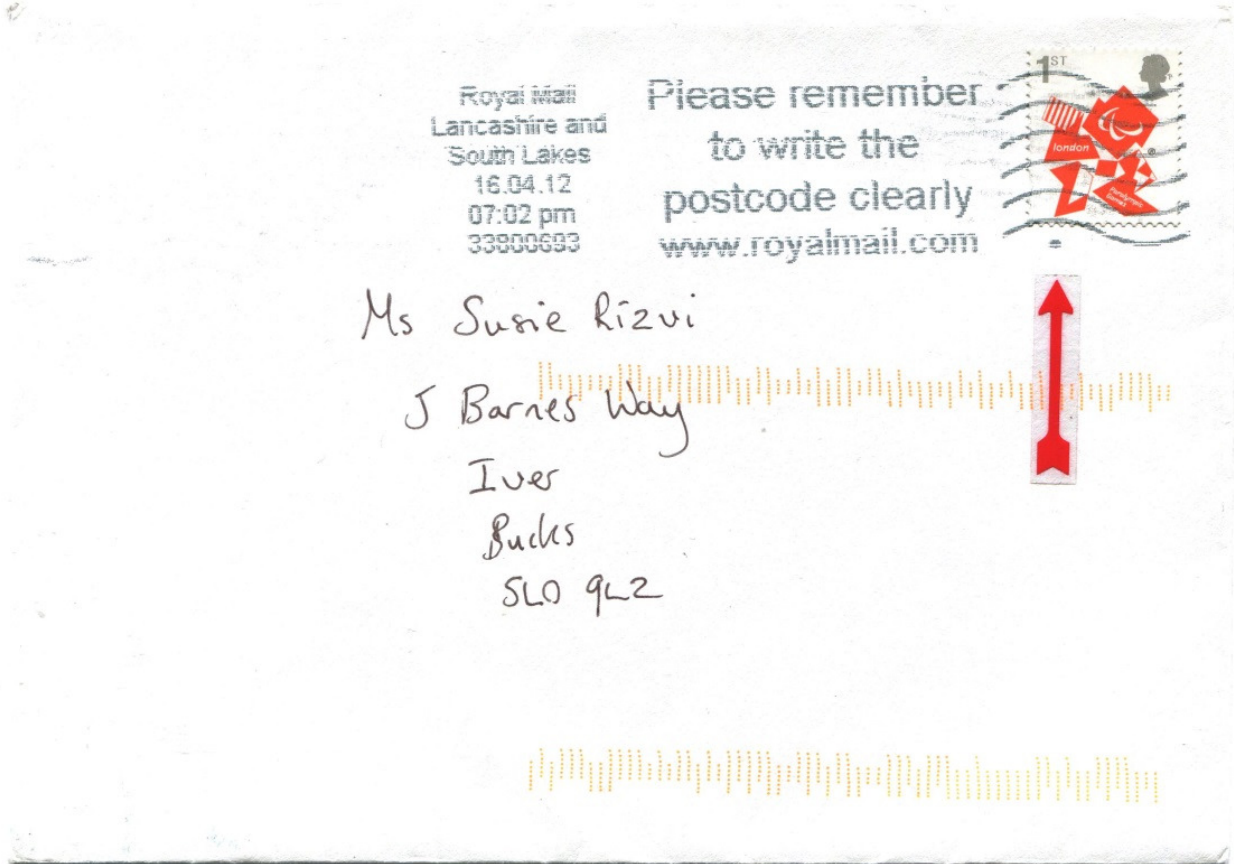 Royal Mail
Lancashire and
South Lakes
16.04.12
07:02 pm
33800693
Please remember
to write the
postcode clearly
www.royalmail.com
1ST
london
Paralympic
Games
Ms Susie Rizvi
J Barnes Way
Iver
Bucks
SL0 9LZ